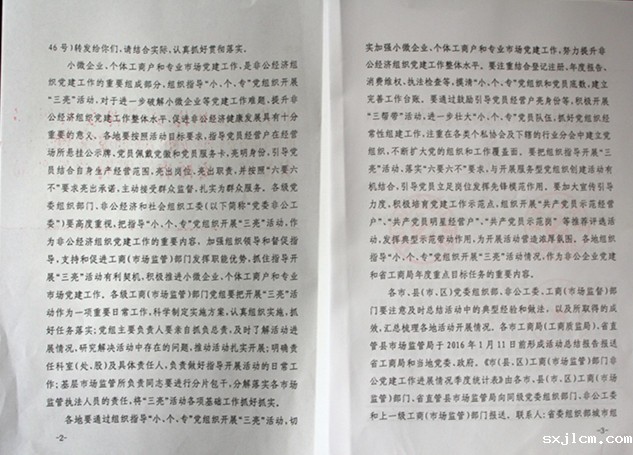 46 号)转发给你们,请结合实际,认真抓好贯彻落实。
小微企业、个体工商户和专业市场党建工作,是非公经济组
织党建工作的重要组成部分,组织指导“小、个、专”党组织开展
“三亮”活动,对于进一步破解小微企业等党建工作难题,提升非
公经济组织党建工作整体水平,促进非公经济健康发展具有十分
重要的意义。各地要按照活动目标要求,指导党员经营户在经营
场所悬挂公示牌,党员佩戴党徽和党员服务卡,亮明身份,引导党
员结合自身生产经营范围,亮出岗位,亮出职责,并按照“六要六
不”要求亮出承诺,主动接受群众监督,扎实为群众服务。各级党
委组织部门、非公经济和社会组织工委(以下简称“党委非公工
委”)要高度重视,把指导“小、个、专”党组织开展“三亮”活动,作
为非公经济组织党建工作的重要内容,加强组织领导和督促指
导,支持和促进工商(市场监管)部门发挥职能优势,抓住指导开
展“三亮”活动有利契机,积极推进小微企业、个体工商户和专业
市场党建工作。各级工商(市场监管)部门党组要把开展“三亮”活
动作为一项重要日常工作,科学制定实施方案,认真组织实施,抓
好任务落实;党组主要负责人要亲自抓负总责,及时了解活动进
展情况,研究解决活动中存在的问题,推动活动扎实开展;明确责
任科室(处、股)及具体责任人,负责做好指导开展活动的日常工
作;基层市场监管所负责同志要进行分片包干,分解落实各市场
监管执法人员的责任,将“三亮”活动各项基础工作抓好抓实。
各地要通过组织指导“小、个、专”党组织开展“三亮”活动,切
-2-
实加强小微企业、个体工商户和专业市场党建工作,努力提升非
公经济组织党建工作整体水平。要注重结合登记注册、年度报告、
消费维权、执法检查等,摸清“小、个、专”党组织和党员底数,建立
完善工作台账。要通过鼓励引导党员经营户亮身份等,积极开展
“三帮带”活动,进一步壮大“小、个、专”党员队伍,抓好党组织经
常性组建工作,注重在各类个私协会及下辖的行业分会中建立党
组织,不断扩大党的组织和工作覆盖面。要把组织指导开展“三
亮”活动,落实“六要六不”要求,与开展服务型党组织创建活动有
机结合,引导党员立足岗位发挥先锋模范作用。要加大宣传引导
力度,积极培育党建工作示范点,组织开展“共产党员示范经营
户”、“共产党员明星经营户”、“共产党员示范岗”等推荐评选活
动,发挥典型示范带动作用,为开展活动营造浓厚氛围。各地组织
指导“小、个、专”党组织开展“三亮”活动情况,作为非公企业党建
和省工商局年度重点目标任务的重要内容。
各市、县(市、区)党委组织部、非公工委、工商(市场监管)部
门要注意及时总结活动中的典型经验和做法,以及所取得的成
效,汇总梳理各地活动开展情况。各市工商局(工商质监局)、省直
管县市场监管局于 2016 年 1 月 11 日前形成活动总结报告报送
省工商局和当地党委、政府。《市(县、区)工商(市场监管)部门非
公党建工作进展情况季度统计表》由各市、县(市、区)工商(市场
监管)部门、省直管县市场监管局向同级党委组织部、非公工委
和上一级工商(市场监管)部门报送。联系人:省委组织部城市组
-3-
sxjlcm.com